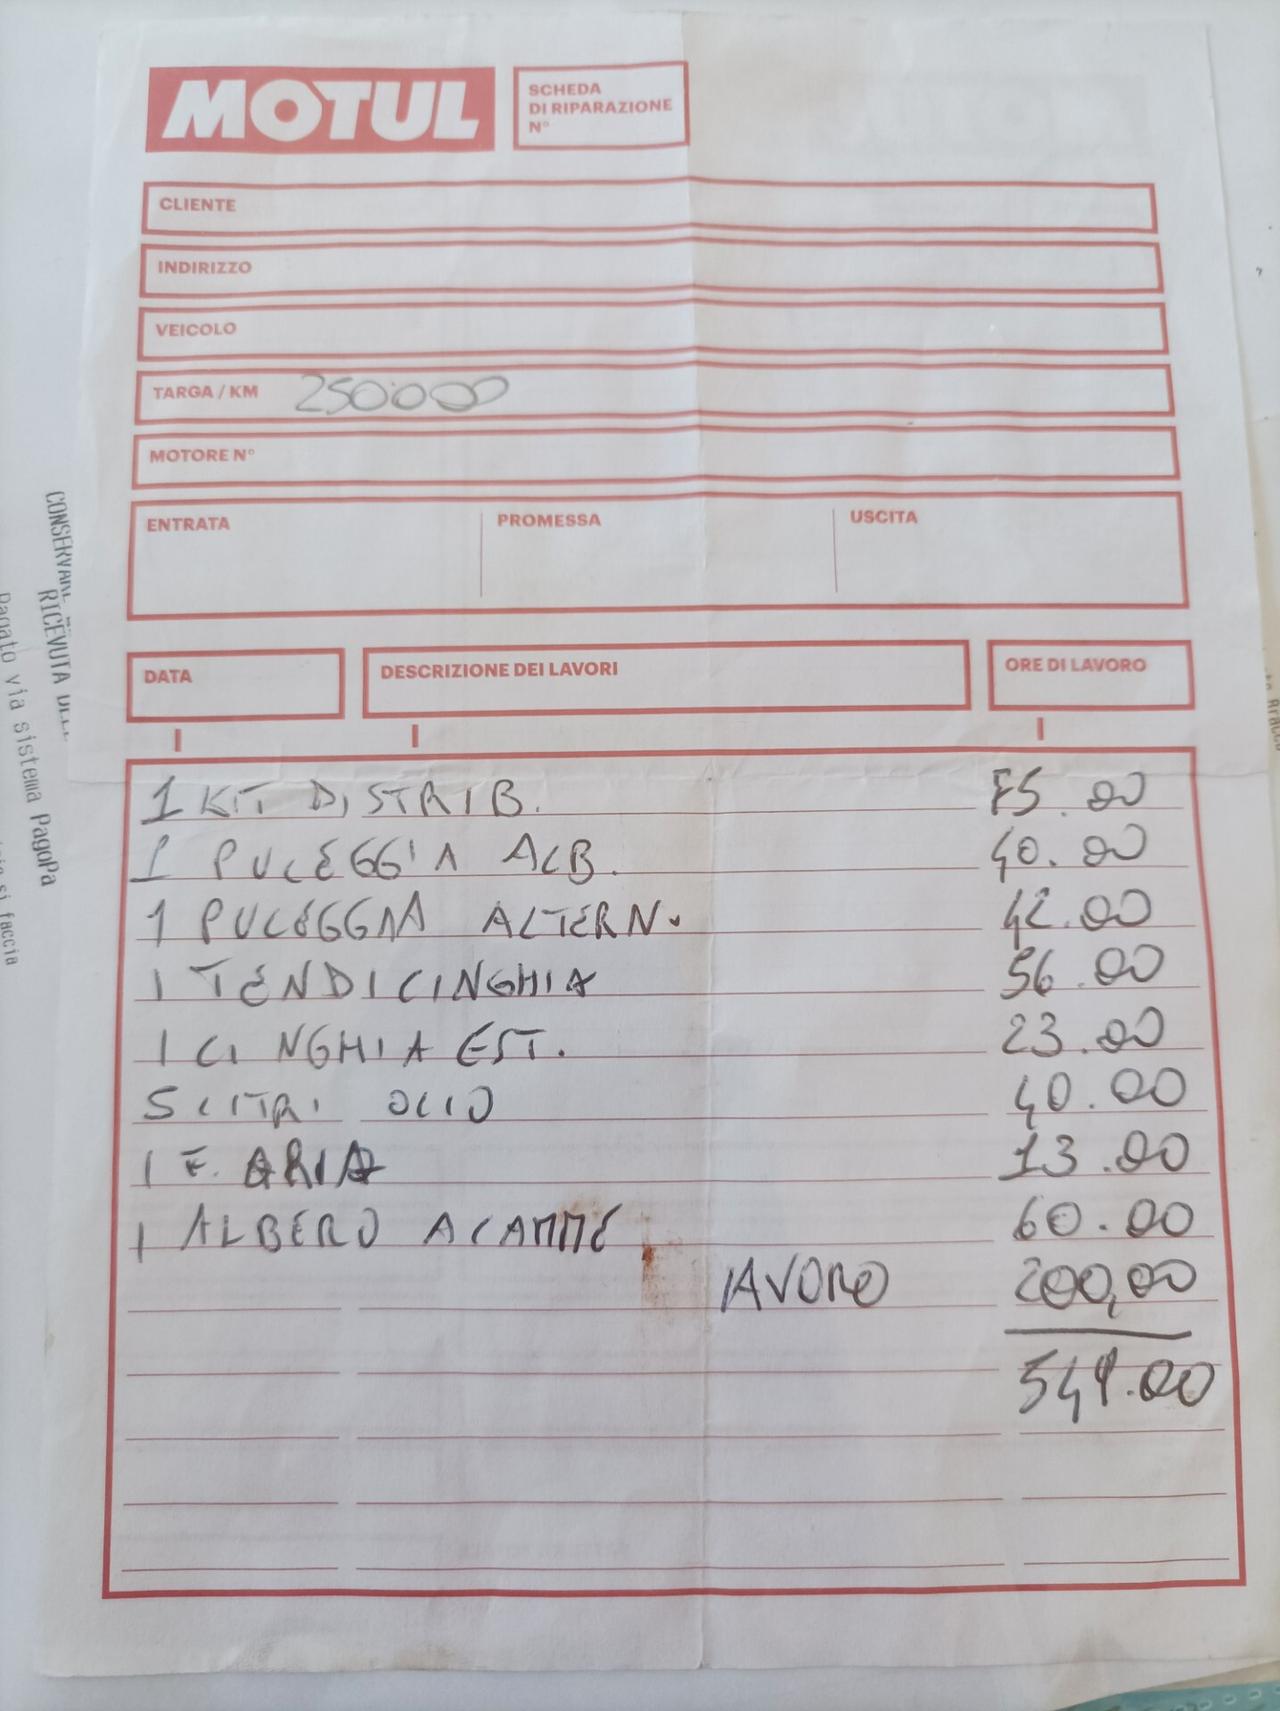 MOTUL
SCHEDA
DI RIPARAZIONE
N°
CLIENTE
INDIRIZZO
VEICOLO
TARGA / KM 250000
MOTORE N°
ENTRATA PROMESSA USCITA
DATA DESCRIZIONE DEI LAVORI ORE DI LAVORO
1 KIT DISTRIB. 75.00
1 PULEGGIA ALB. 40.00
1 PULEGGIA ALTERN. 42.00
1 TENDICINGHIA 56.00
1 CINGHIA EST. 23.00
5 LITRI OLIO 40.00
1 F. ARIA 13.00
1 ALBERO ACAMME 60.00
LAVORO 200,00
549.00
CONSERVARE
RICEVUTA
Pagato via sistema PagoPa
si faccia